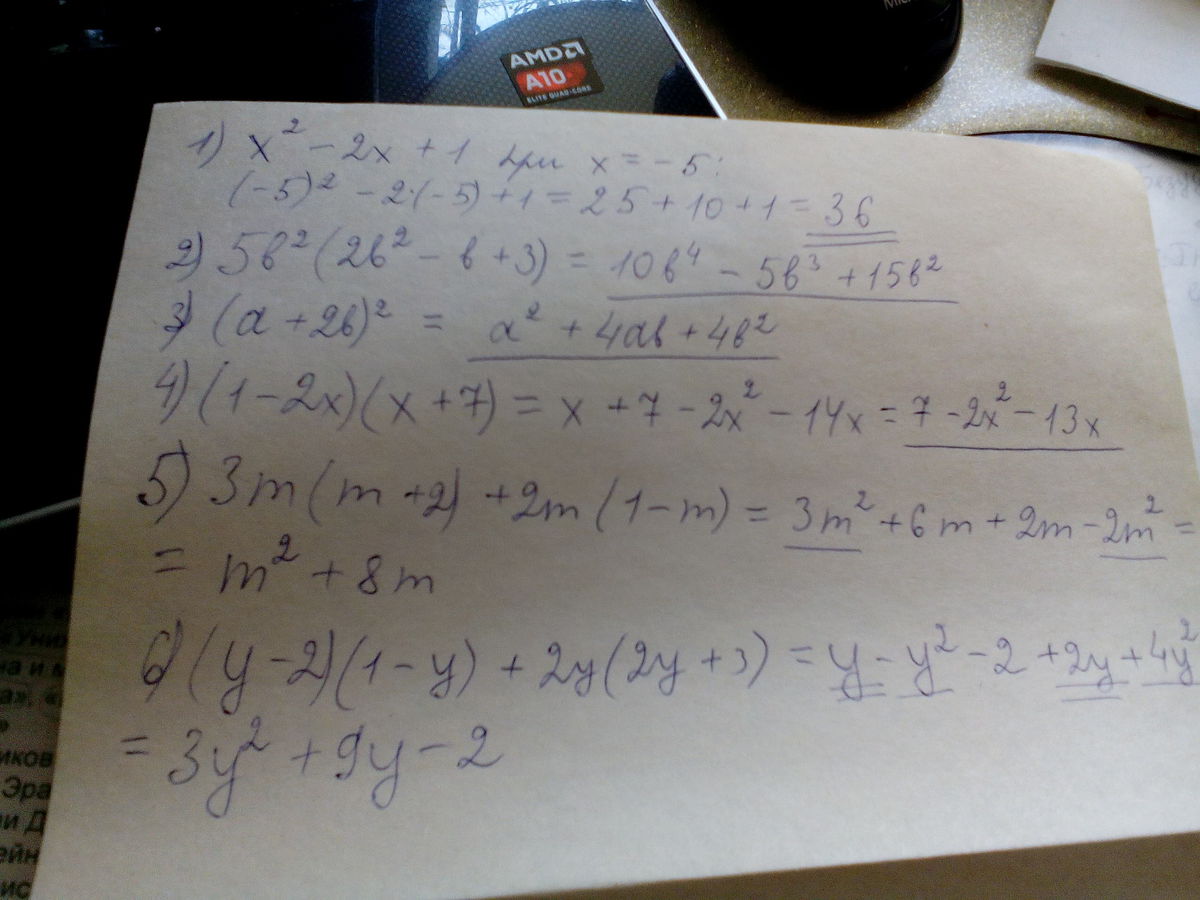 Micr
AMD
A10
ELITE QUAD-CORE
1) x² - 2x + 1 при x = -5:
(-5)² - 2·(-5) + 1 = 25 + 10 + 1 = 36
2) 5в² (2в² - в + 3) = 10в⁴ - 5в³ + 15в²
3) (а + 2в)² = а² + 4ав + 4в²
4) (1 - 2x)(x + 7) = x + 7 - 2x² - 14x = 7 - 2x² - 13x
5) 3m (m + 2) + 2m (1 - m) = 3m² + 6m + 2m - 2m² =
= m² + 8m
6) (y - 2)(1 - y) + 2y (2y + 3) = y - y² - 2 + 2y + 4y²
= 3y² + 9y - 2